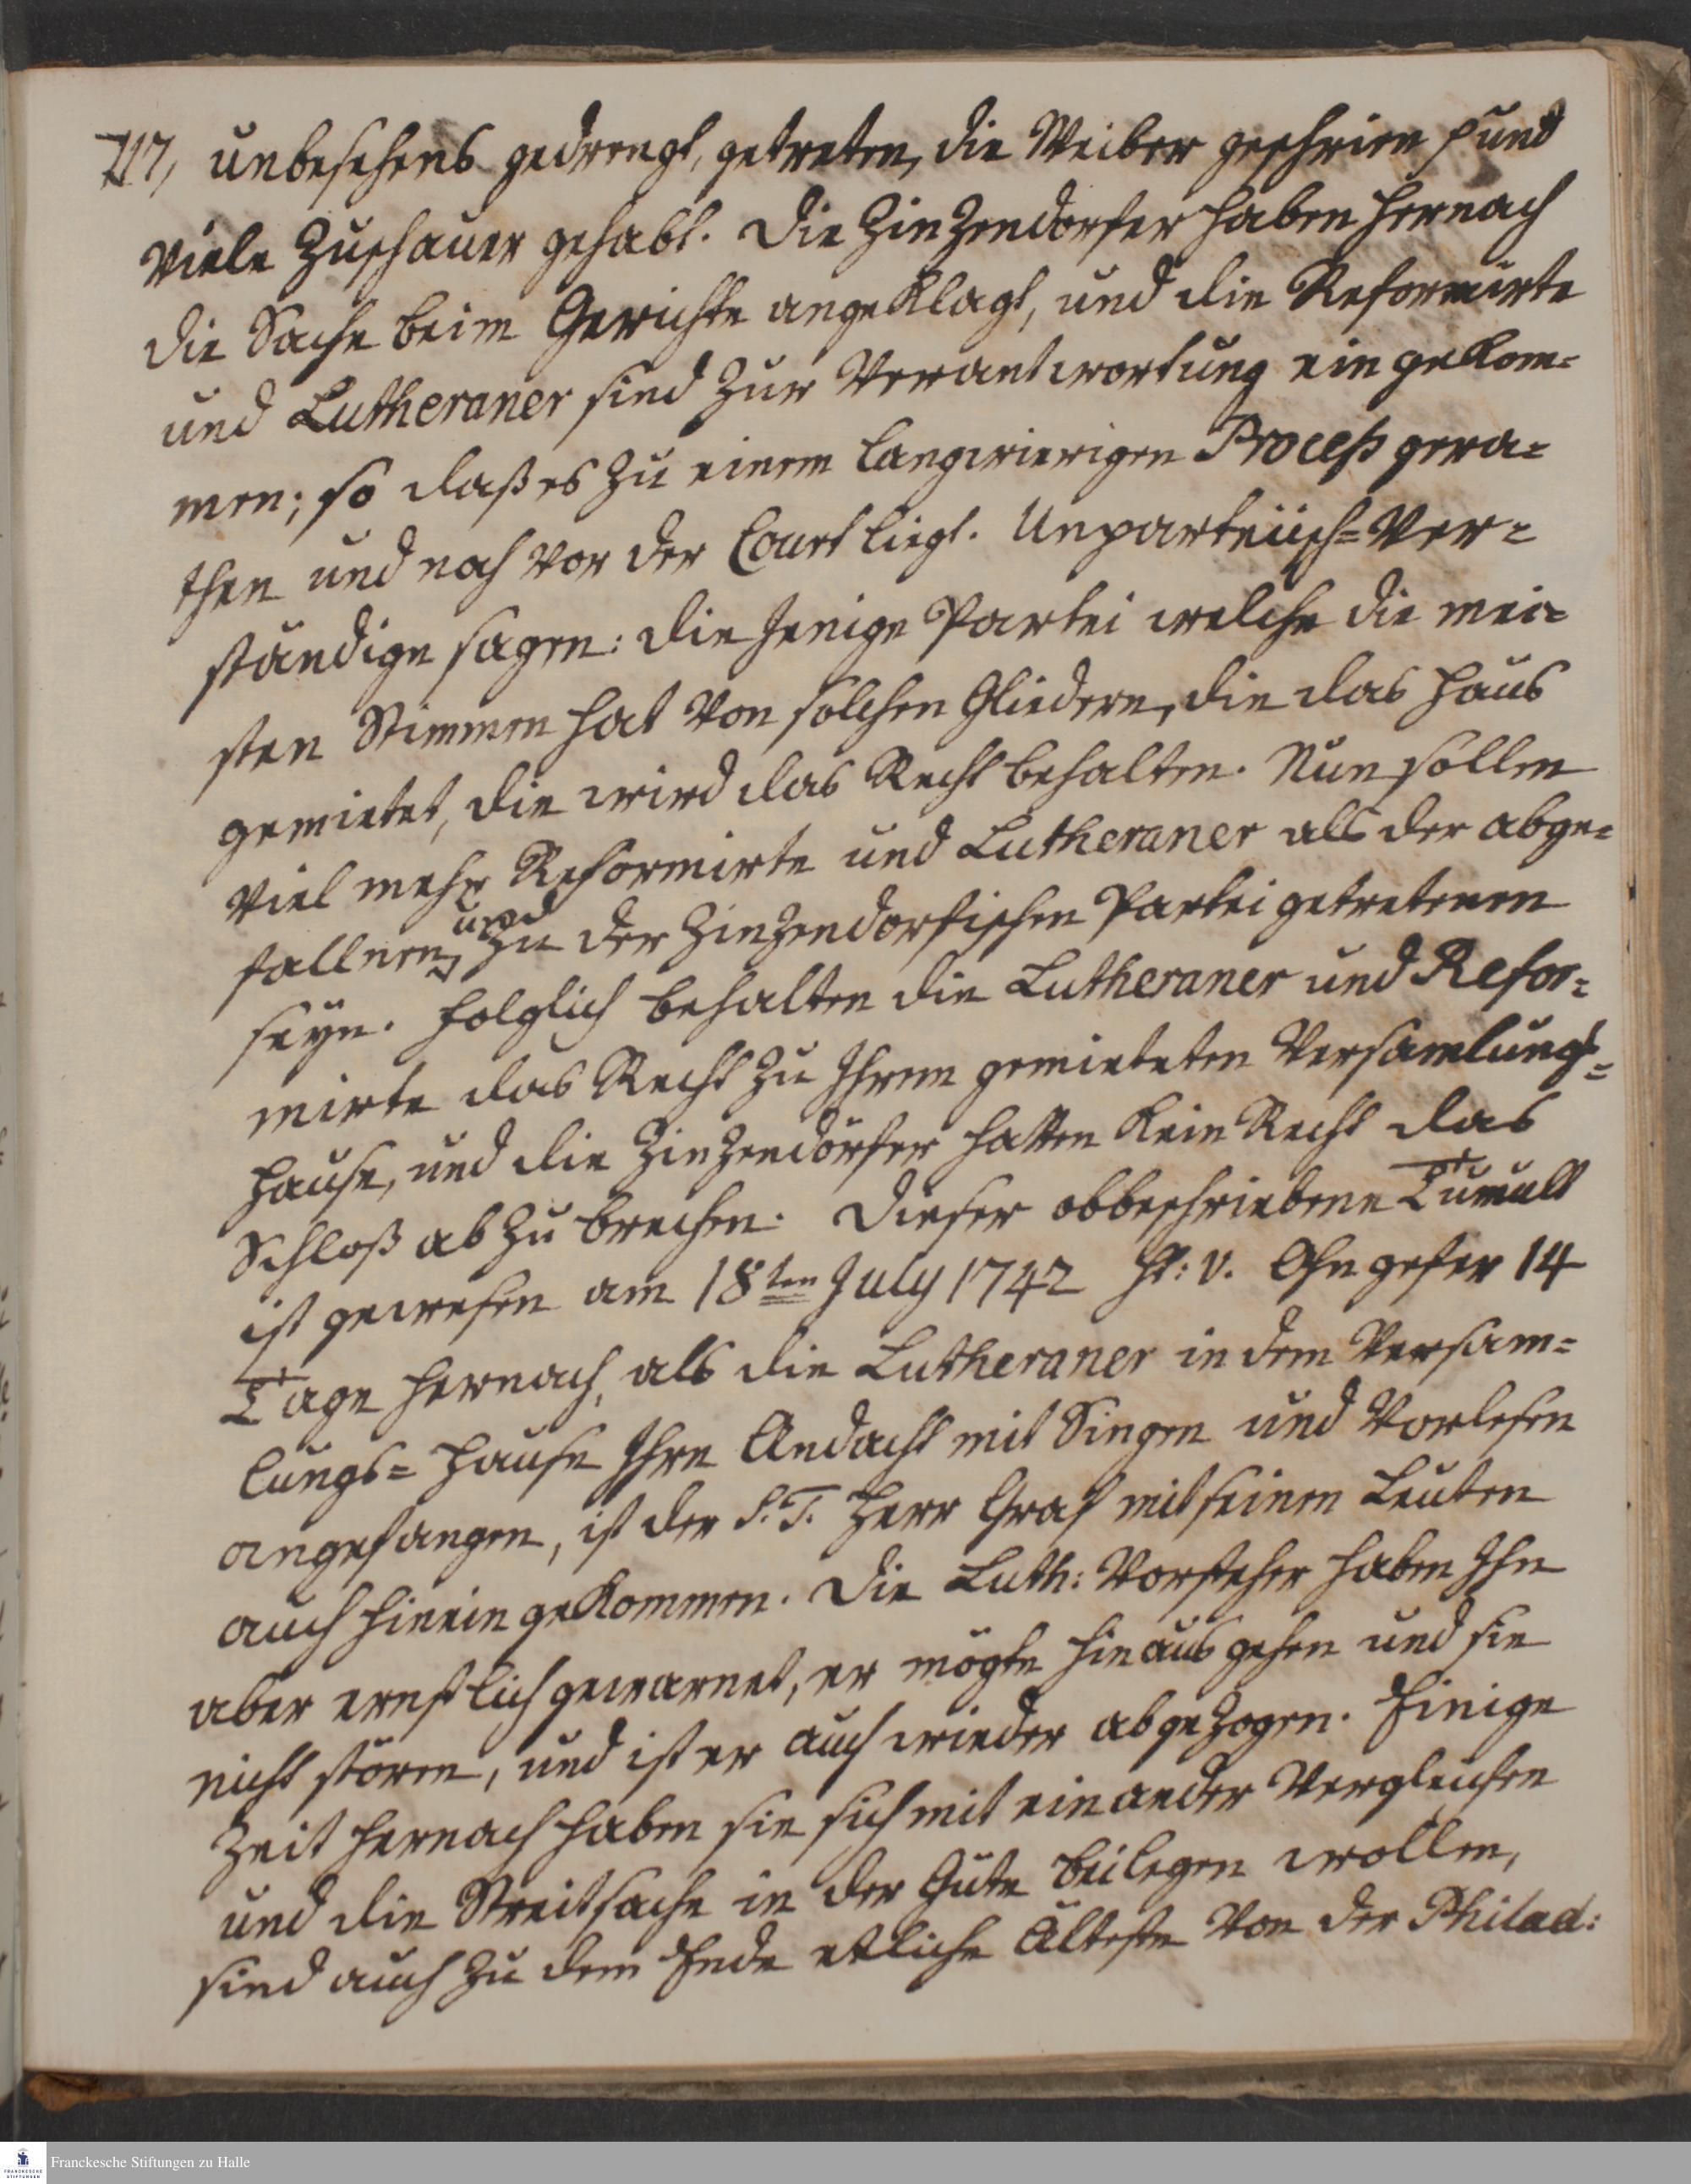 717, unbesehens gedrengt, getreten, die Weiber geschrien p und
viele Zuschauer gehabt. Die Zinzendorfer haben hernach
die Sache beim Gerichte angeklagt, und die Reformirte
und Lutheraner sind zur Verantwortung ein gekom=
men; so daß es zu einem langwierigen Proceß gera=
then und noch vor der Court liegt. Unparteiisch=Ver=
ständige sagen: die Jenige Partei welche die mei=
sten Stimmen hat von solchen Gliedern, die das Haus
gemietet, die wird das Recht behalten. Nun sollen
viel mehr Reformirte und Lutheraner als der abge=
fallnen, und zu der Zinzendorfischen Partei getretenen
seyn. Folglich behalten die Lutheraner und Refor=
mirte das Recht zu Ihrem gemieteten Versamlungs=
Hause, und die Zinzendörfer hatten kein Recht das
Schloß ab zu brechen. Dieser obbeschriebene Tumult
ist gewesen am 18ten July 1742 St: v. Ohngefer 14
Tage hernach, als die Lutheraner in dem Versam=
lungs= Hause Ihre Andacht mit Singen und Vorlesen
angefangen, ist der S. T. Herr Graf mit seinen Leuten
auch hinein gekommen. Die Luth: Vorsteher haben Ihn
aber ernstlich gewarnet, er mögte hinaus gehen und sie
nicht stören, und ist er auch wieder abgezogen. Einige
Zeit hernach haben sie sich mit einander vergleichen
und die Streitsache in der Güte beilegen wollen,
sind auch zu dem Ende etliche Älteste von der Philad:
Franckesche Stiftungen zu Halle
FRANCKESCHE
STIFTUNGEN